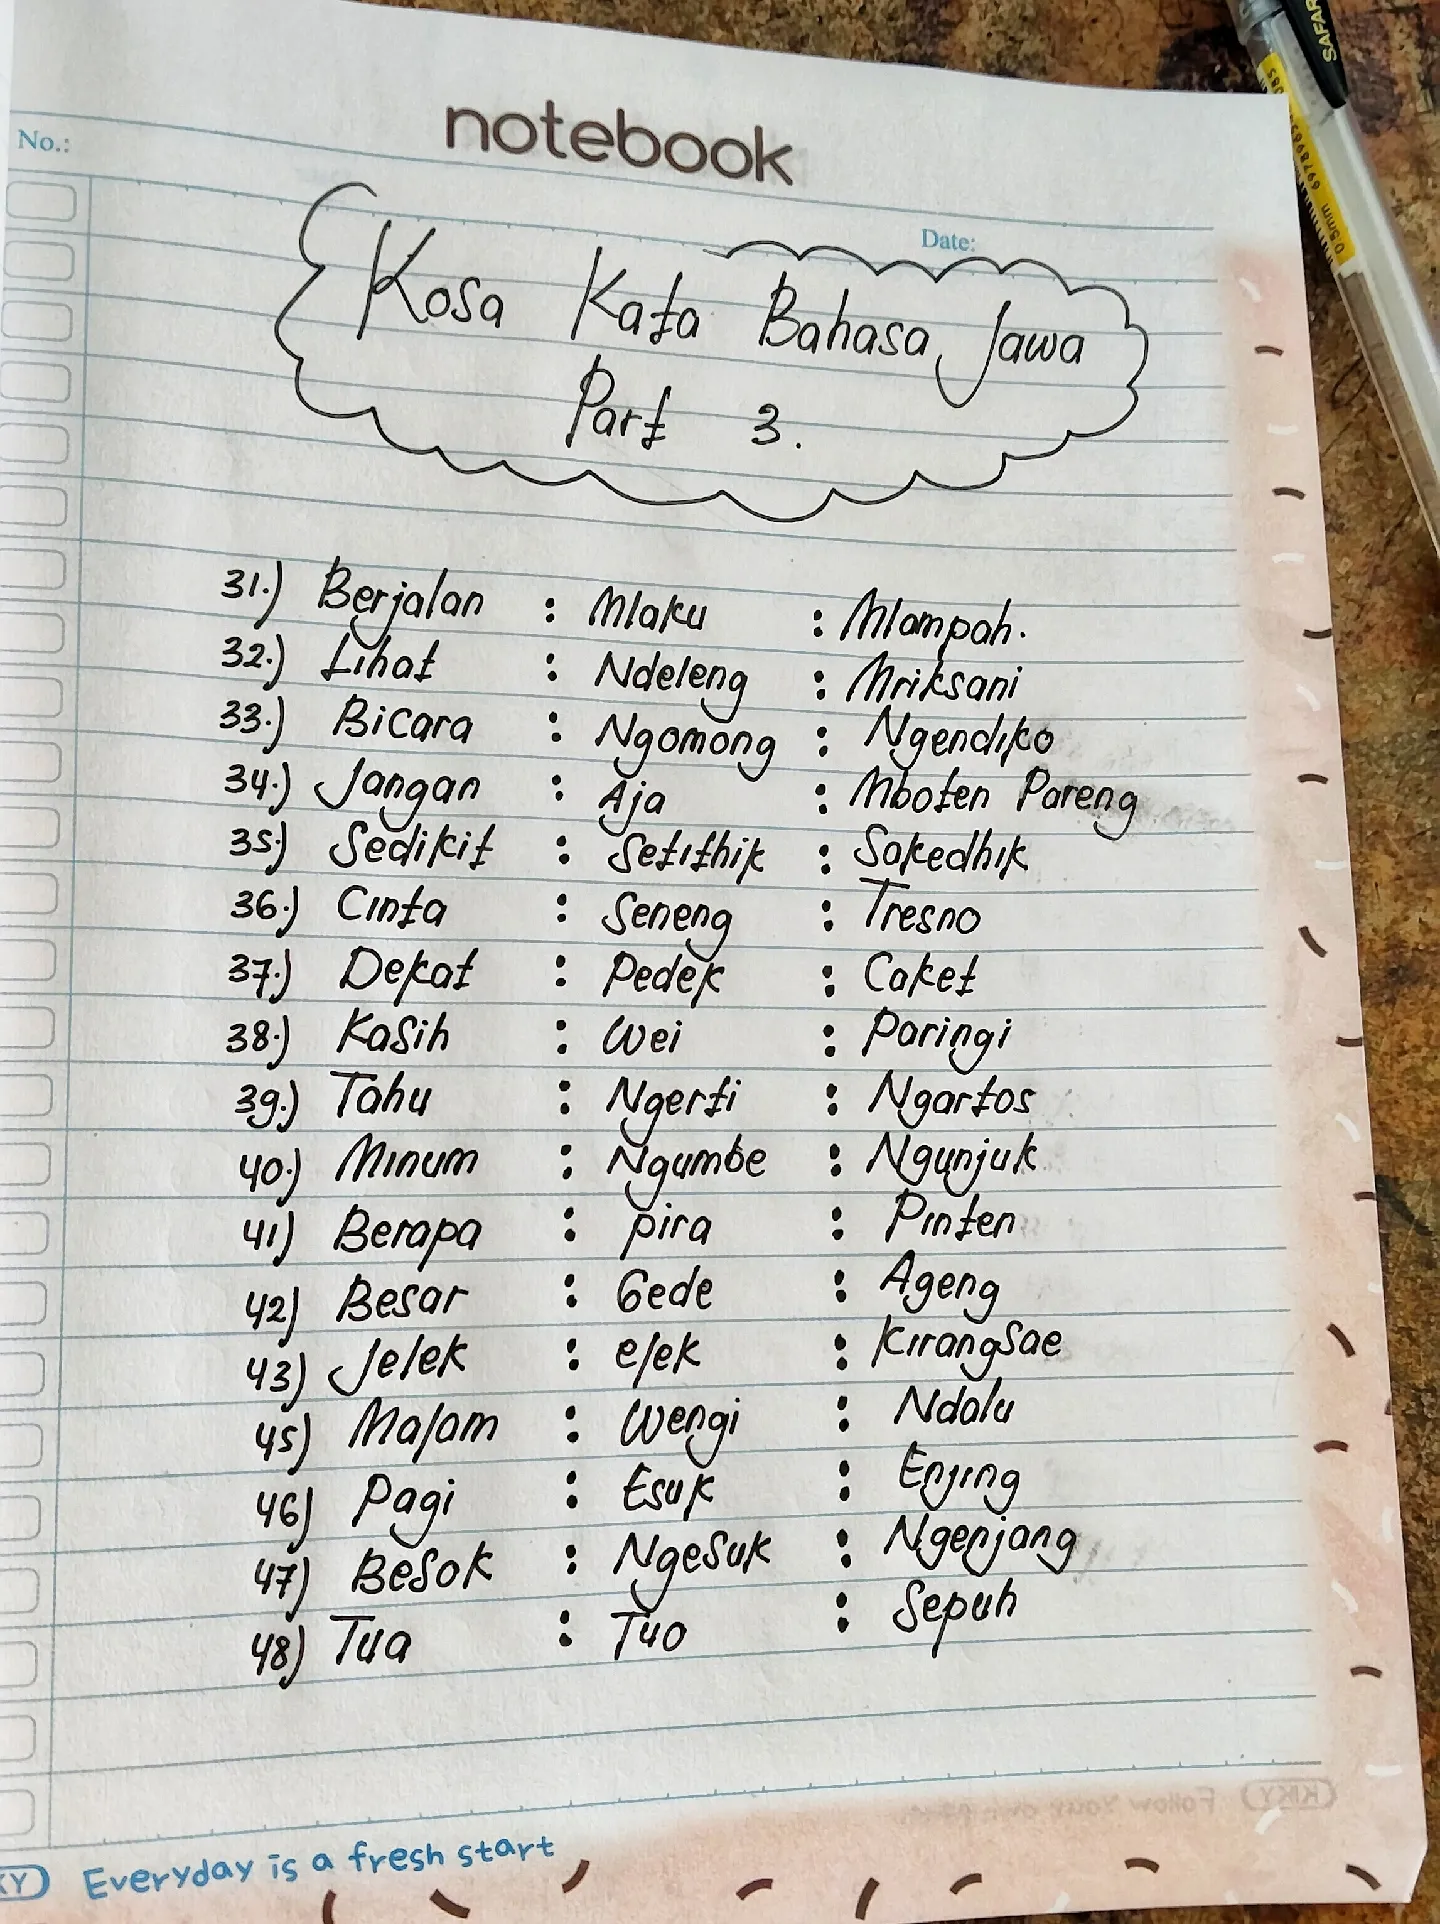 notebook
No.:
Date:
Kosa Kata Bahasa Jawa
Part 3.
31.) Berjalan : Mlaku : Mlampah.
32.) Lihat : Ndeleng : Mriksani
33.) Bicara : Ngomong : Ngendiko
34.) Jangan : Aja : Mboten Pareng
35.) Sedikit : Setithik : Sakedhik
36.) Cinta : Seneng : Tresno
37.) Dekat : Pedek : Caket
38.) Kasih : Wei : Paringi
39.) Tahu : Ngerti : Ngartos
40.) Minum : Ngumbe : Ngunjuk
41) Berapa : pira : Pinten
42) Besar : Gede : Ageng
43) Jelek : elek : Kirangsae
45) Malam : Wengi : Ndalu
46) Pagi : Esuk : Enjing
47) Besok : Ngesuk : Ngenjang
48) Tua : Tuo : Sepuh
KY Everyday is a fresh start
KIKY Follow Your own
SAFAR
0.5mm